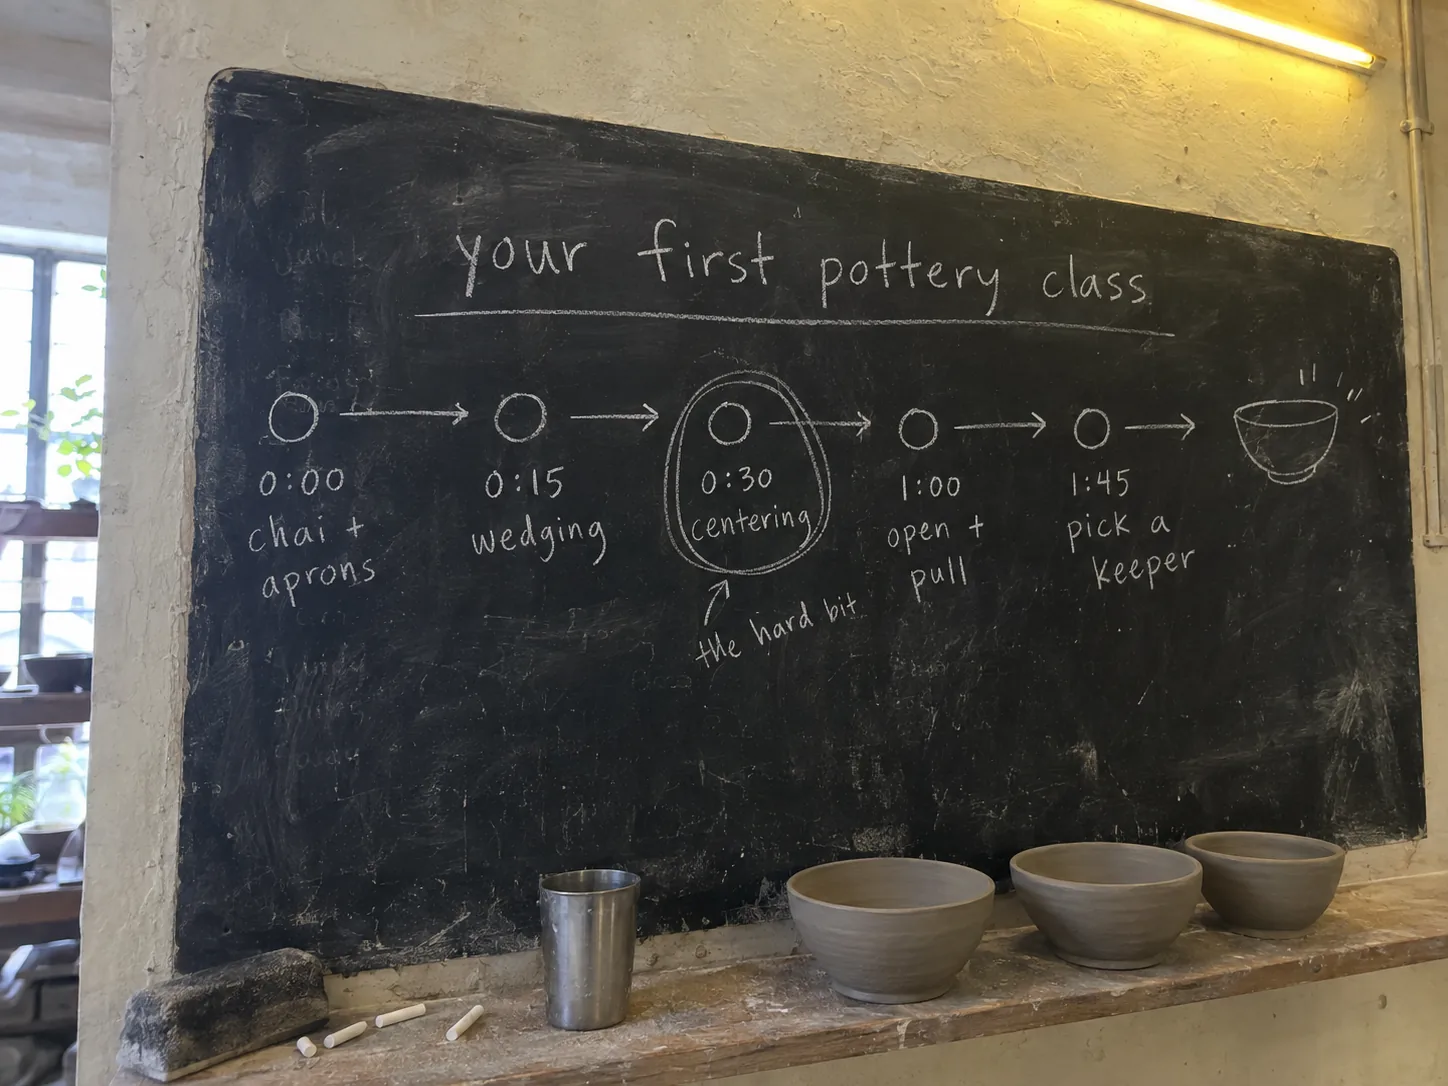 your first pottery class
0:00
chai +
aprons
0:15
wedging
0:30
centering
the hard bit
1:00
open +
pull
1:45
pick a
keeper